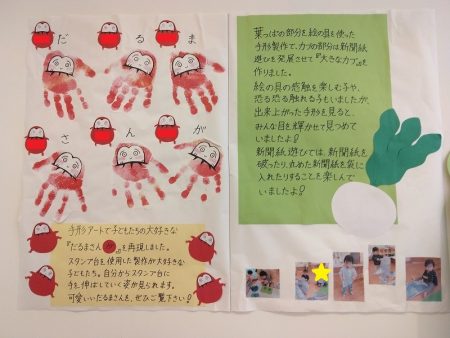 だるま
さんが
手形アートで子どもたちの大好きな
『だるまさんが』を再現しました。
スタンプ台を使用した製作が大好きな
子どもたち。自分からスタンプ台に
手を伸ばしていく姿が見られます。
可愛いいだるまさんを、ぜひご覧下さい!
葉っぱの部分を絵の具を使った
手形製作で、カブの部分は新聞紙
遊びを発展させて『大きなカブ』を
作りました。
絵の具の感触を楽しむ子や、
恐る恐る触れる子もいましたが、
出来上がった手形を見ると、
みんな目を輝かせて見つめて
いましたよ!
新聞紙遊びでは、新聞紙を
破ったり、丸めた新聞紙を袋に
入れたりすることを楽しんで
いましたよ!